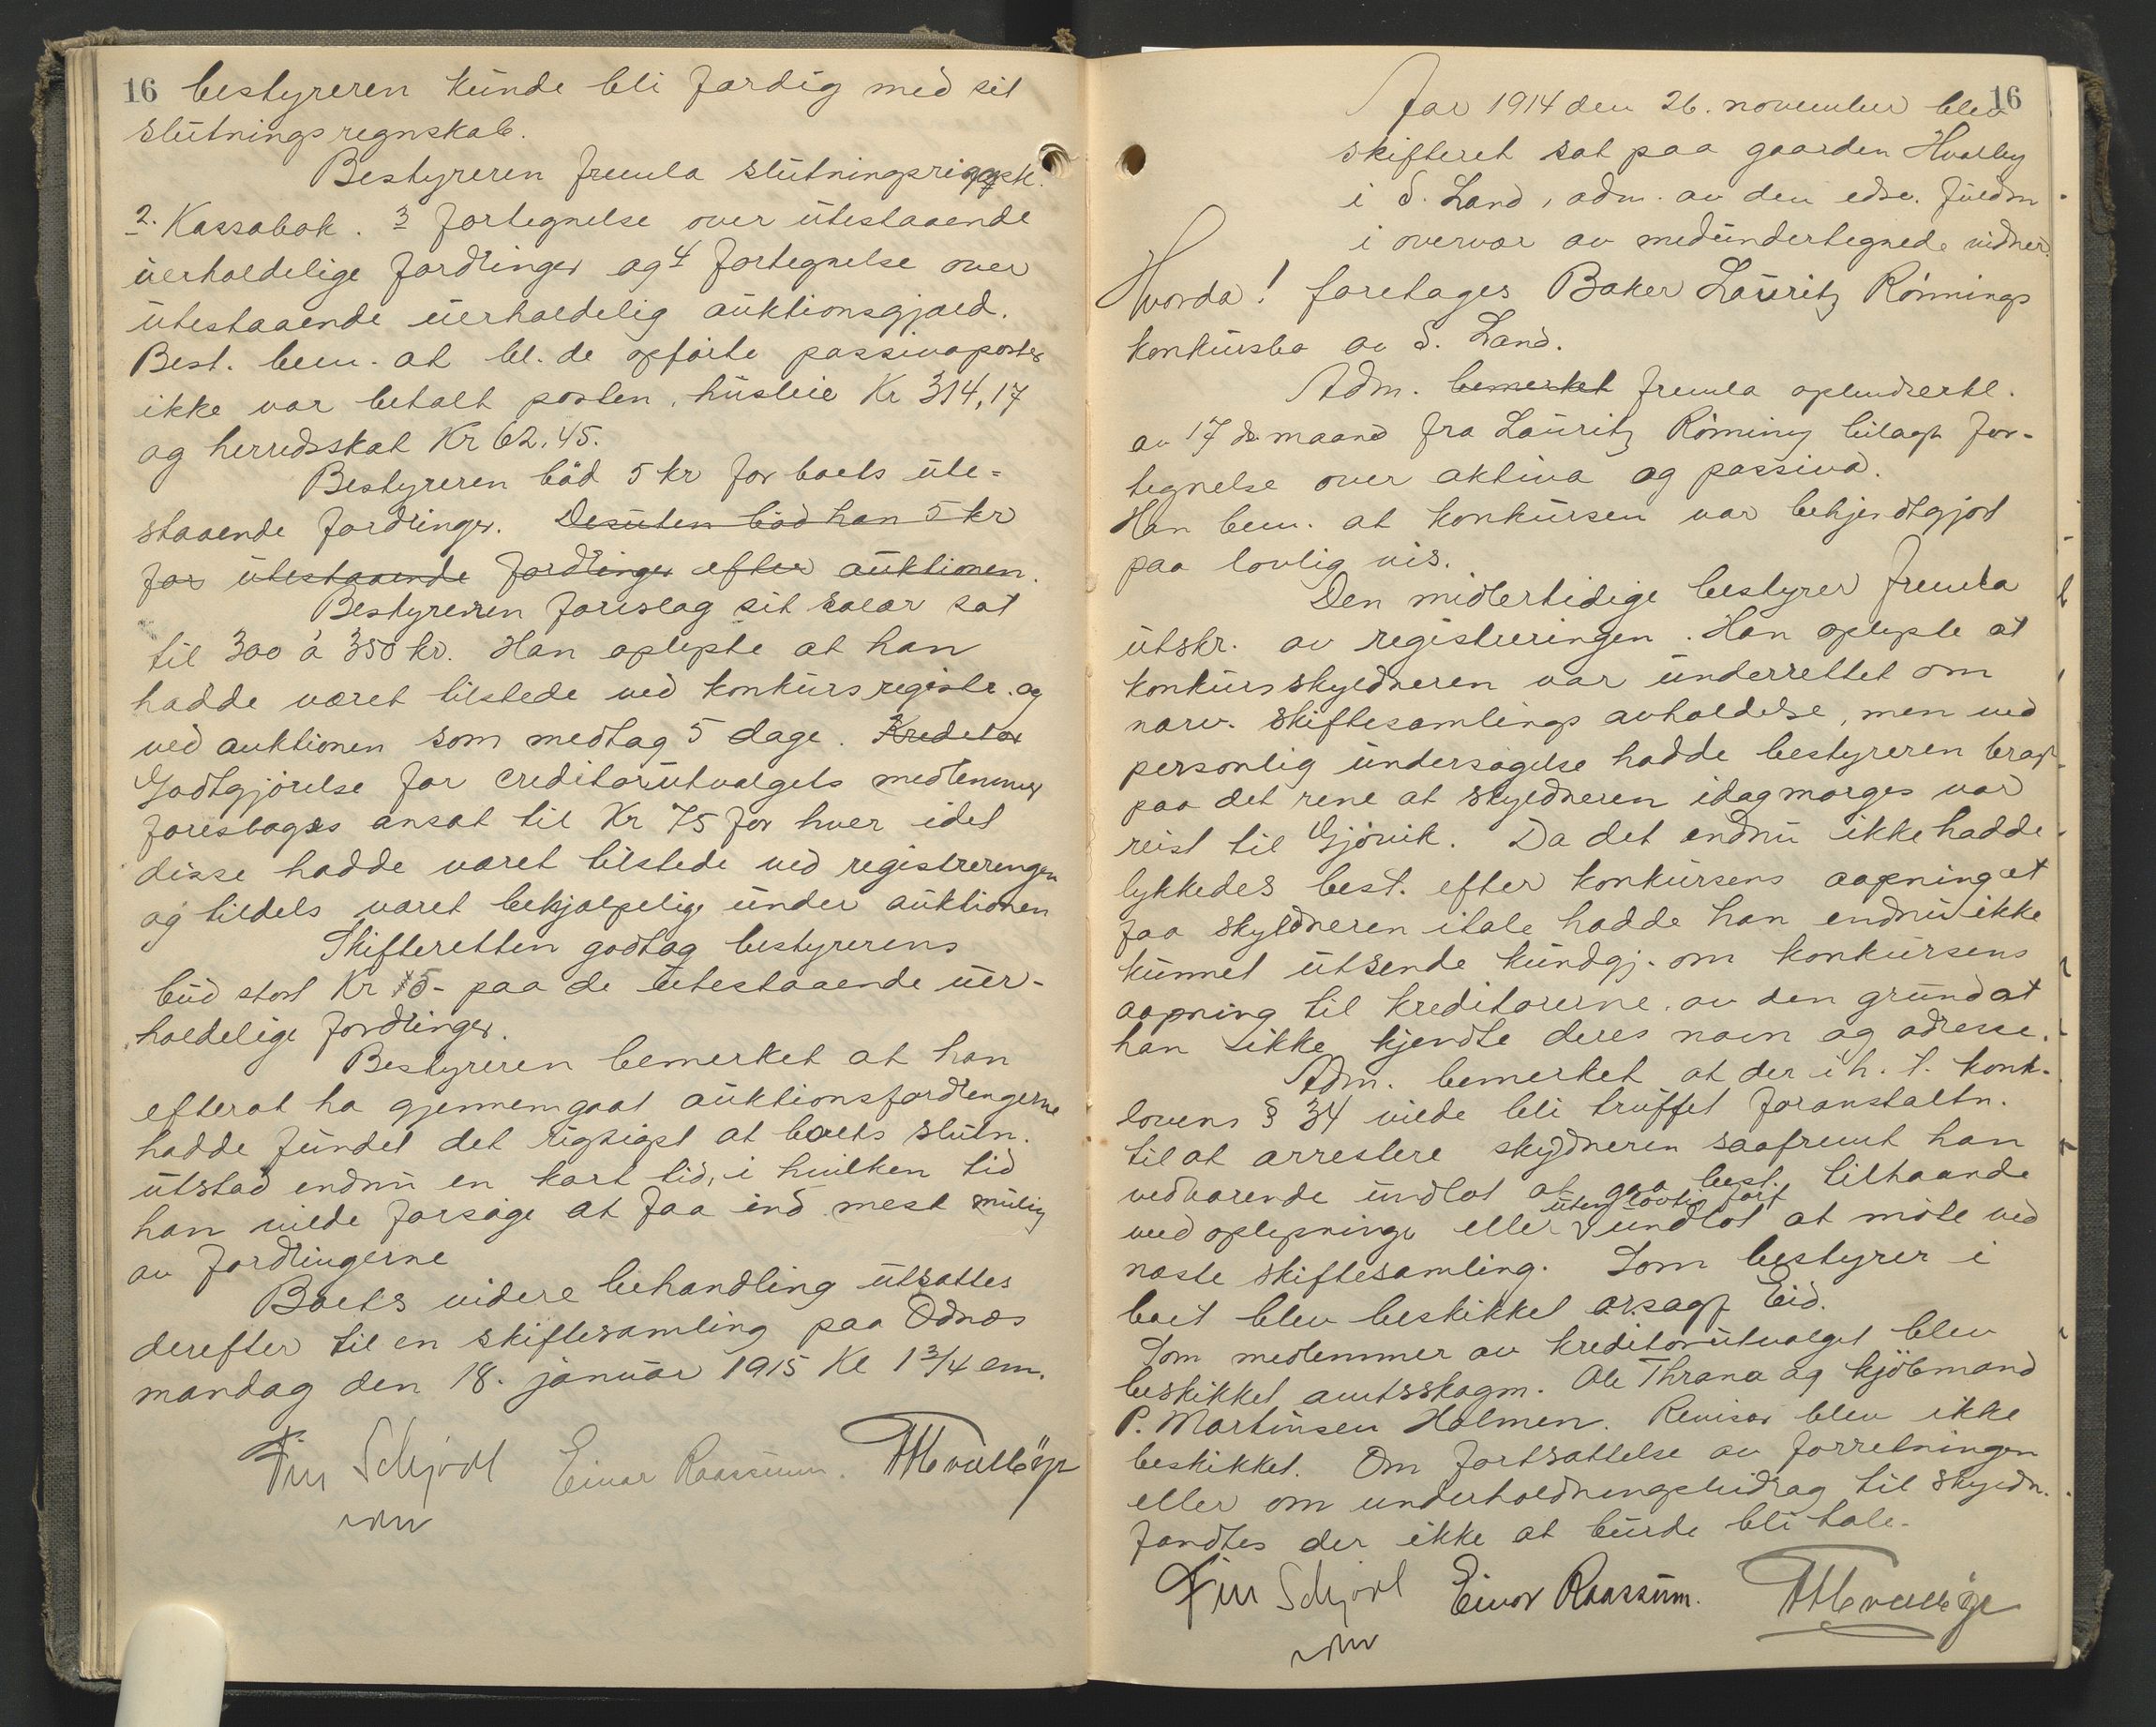 16 bestyreren kunde bli færdig med sit
slutningsregnskab.
Bestyreren fremla slutningsregnsk.
2. Kassabok. 3 fortegnelse over utestaaende
uerholdelige fordringer og 4 fortegnelse over
utestaaende uerholdelig auktionsgjæld.
Best. bem. at bl. de opførte passivaposter
ikke var betalt posten, husleie Kr 314,17
og herredsskat Kr 62.45.
Bestyreren bød 5 kr for boets ute=
staaende fordringer. Desuten bød han 5 kr
for utestaaende fordringer efter auktionen.
Bestyreren foreslog sit salær sat
til 300 à 350 kr. Han oplyste at han
hadde været tilstede ved konkursregistr. og
ved auktionen som medtog 5 dage. Kreditor
Godtgjørelse for creditorutvalgets medlemmer
foresloges ansat til Kr 75 for hver idet
disse hadde været tilstede ved registreringen
og tildels været behjælpelige under auktionen
Skifteretten godtog bestyrerens
bud stort Kr 5- paa de utestaaende uer-
holdelige fordringer.
Bestyreren bemerket at han
efterat ha gjennemgaat auktionsfordringerne
hadde fundet det rigtigst at boets slutn.
utstod endnu en kort tid, i hvilken tid
han vilde forsøge at faa ind mest mulig
av fordringerne
Boets videre behandling utsattes
derefter til en skiftesamling paa Odnes
mandag den 18. januar 1915 Kl 1 3/4 em.
Finn Schjødt Einar Raassum.
16
Aar 1914 den 26. november blev
skifteret sat paa gaarden Hvalby
i S. Land, adm. av den edsv. fuldm
i overvær av medundertegnede vidner.
Hvorda! foretages Baker Lauritz Rønnings
konkursbo av S. Land.
Adm. bemerket fremla opbudserkl.
av 17 ds. maaned fra Lauritz Rønning bilagt for-
tegnelse over aktiva og passiva.
Han bem. at konkursen var bekjendtgjort
paa lovlig vis.
Den midlertidige bestyrer fremla
utskr. av registreringen. Han oplyste at
konkursskyldneren var underrettet om
nærv. skiftesamlings avholdelse, men ved
personlig undersøgelse hadde bestyreren bragt
paa det rene at skyldneren idagmorges var
reist til Gjøvik. Da det endnu ikke hadde
lykkedes best. efter konkursens aapning at
faa skyldneren itale hadde han endnu ikke
kunnet utsende kundgj. om konkursens
aapning til kreditorerne, av den grund at
han ikke kjendte deres navn og adresse.
Adm. bemerket at der i h. t. konk-
lovens § 34 vilde bli truffet foranstaltn.
til at arrestere skyldneren saafremt han
vedvarende undlot at gaa best. tilhaande
uten lovlig forf
med oplysninger eller V undlot at møte ved
næste skiftesamling. Som bestyrer i
boet blev beskikket o.r.sagf. Eid.
Som medlemmer av kreditorutvalget blev
beskikket amtsskogm. Ole Thrana og kjøbmand
P. Martinsen Holmen. Revisor blev ikke
beskikket. Om fortsættelse av forretningen
eller om underholdningsbidrag til skyldn.
fandtes der ikke at burde bli tale.
Finn Schjødt Einar Raassum.